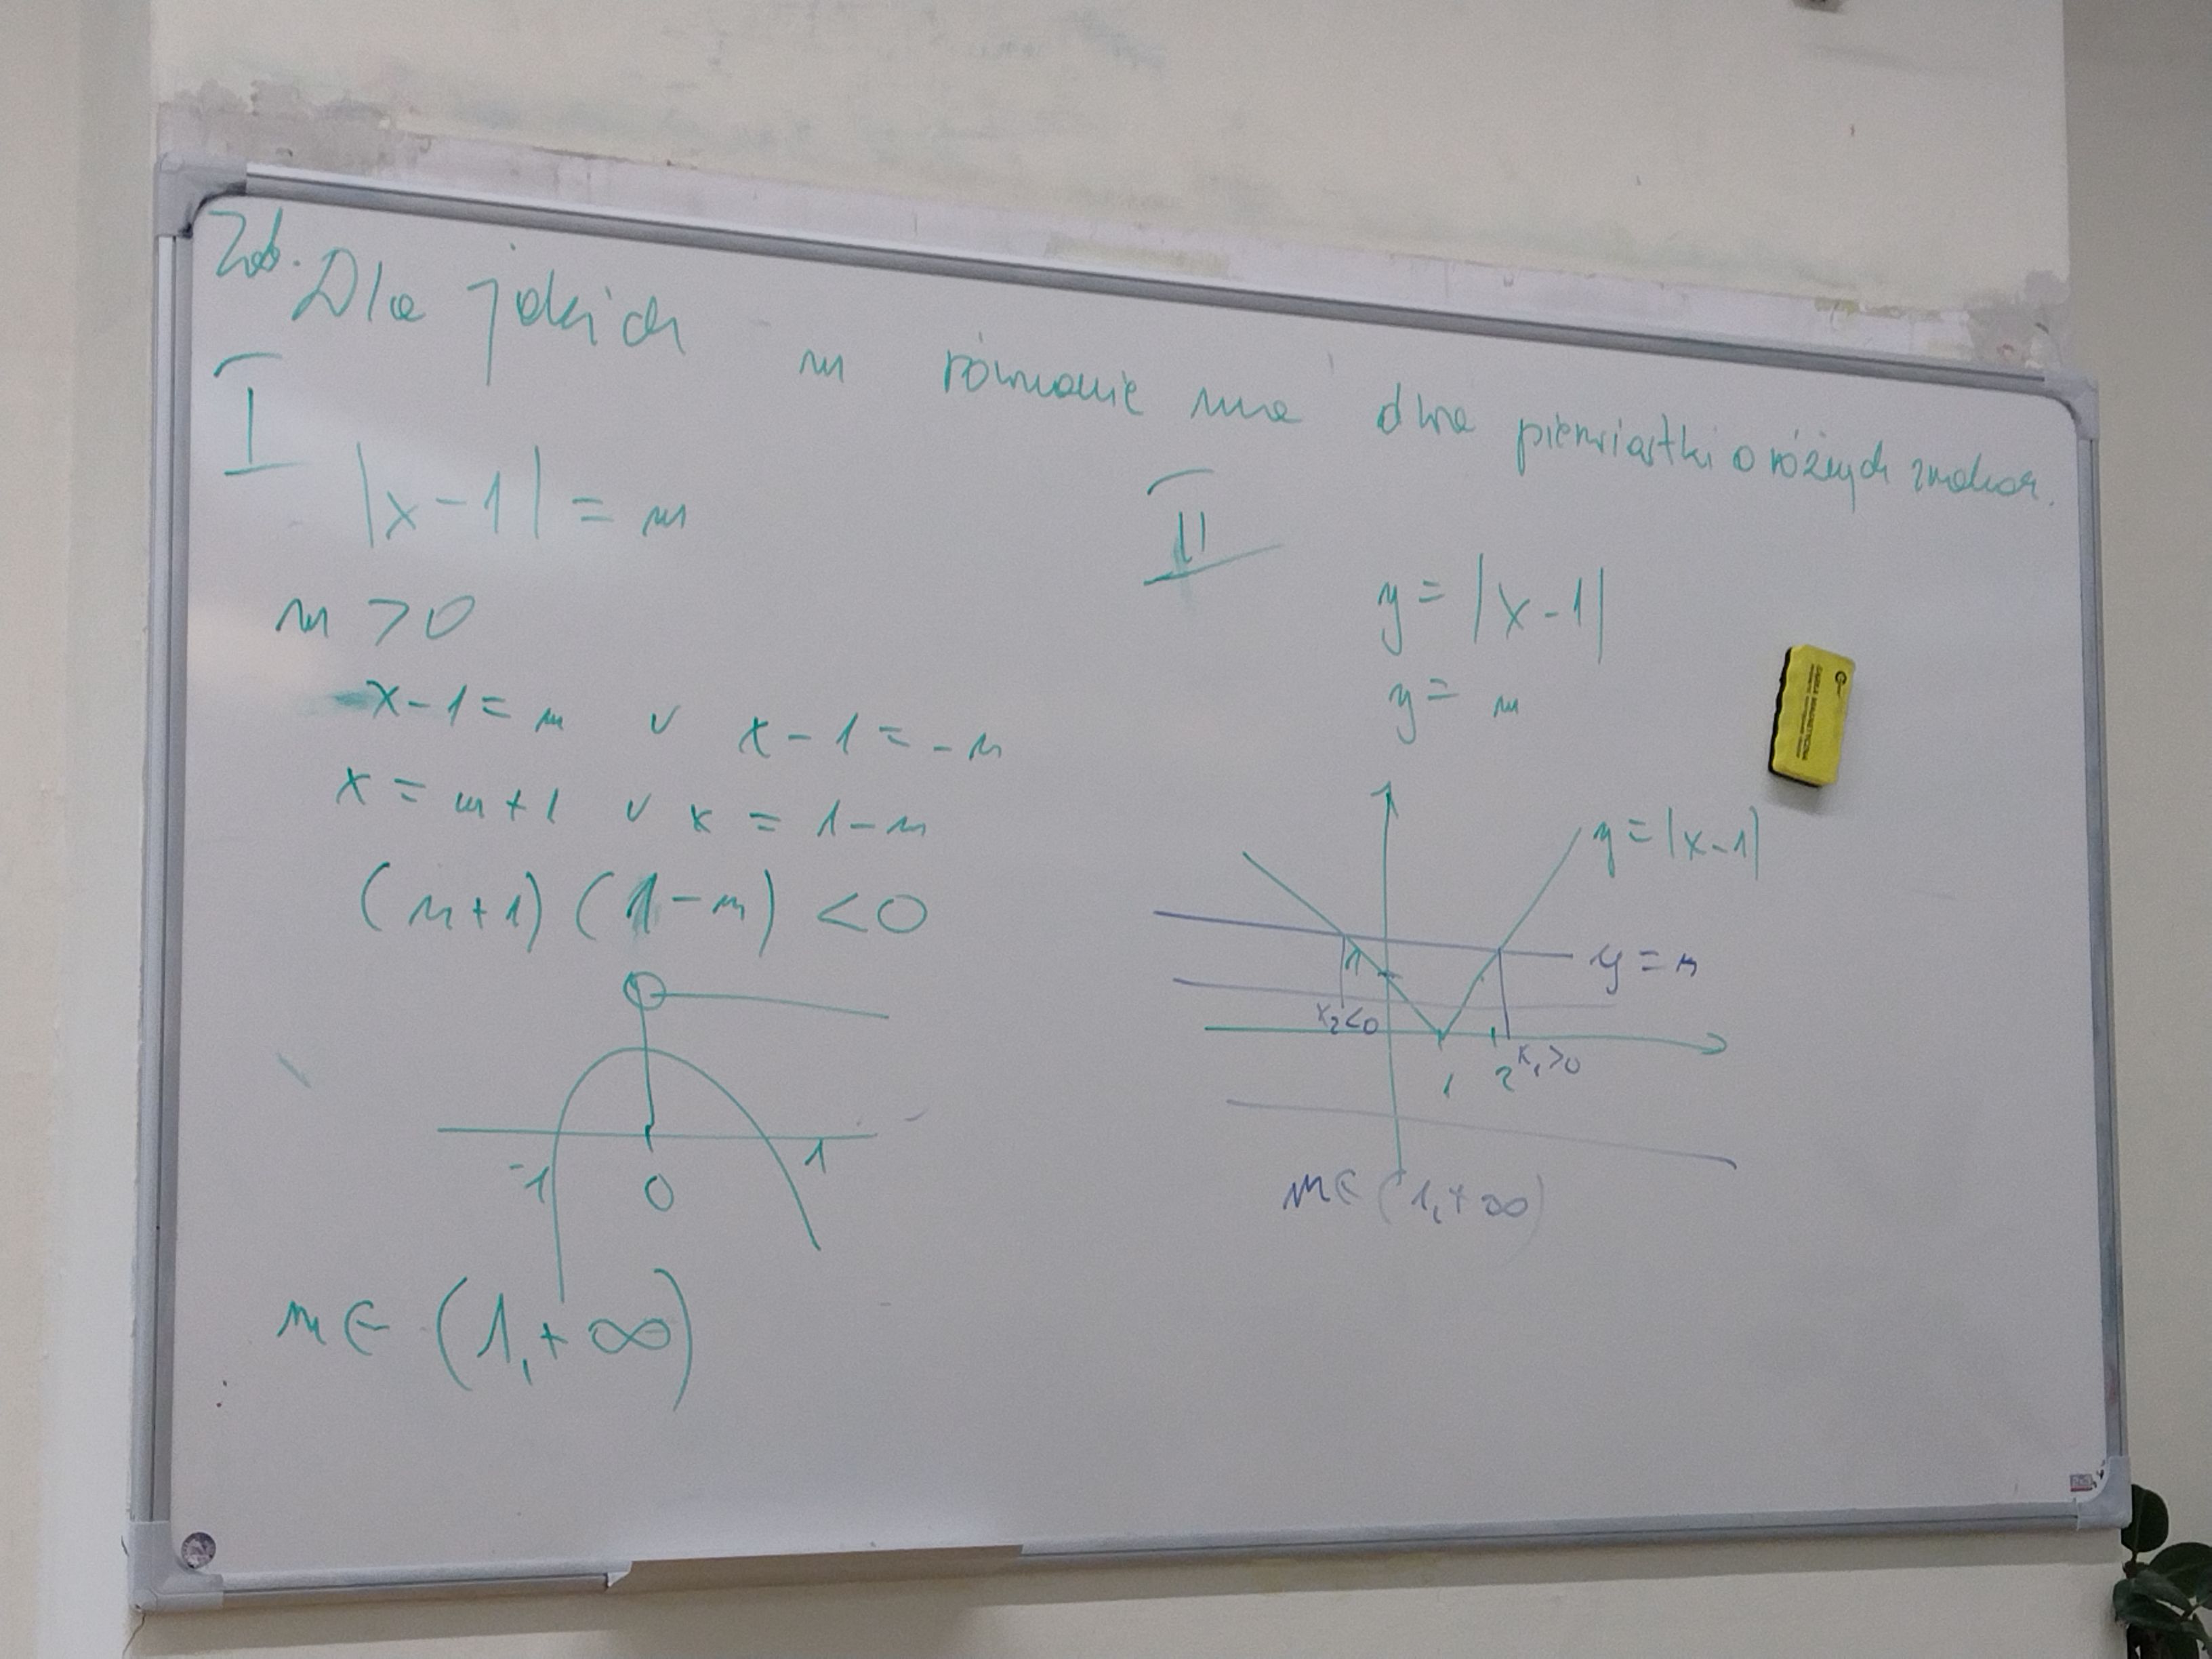 Zad. Dla jakich m równanie ma dwa pierwiastki o róźych znakach.
I
|x-1| = m
m > 0
x-1 = m v x-1 = -m
x = m+1 v x = 1-m
(m+1) (1-m) < 0
-1 0 1
m ∈ (1,+∞)
II
y = |x-1|
y = m
y = |x-1|
y = m
1
x₂<0
1 2 x₁>0
m ∈ (1,+∞)